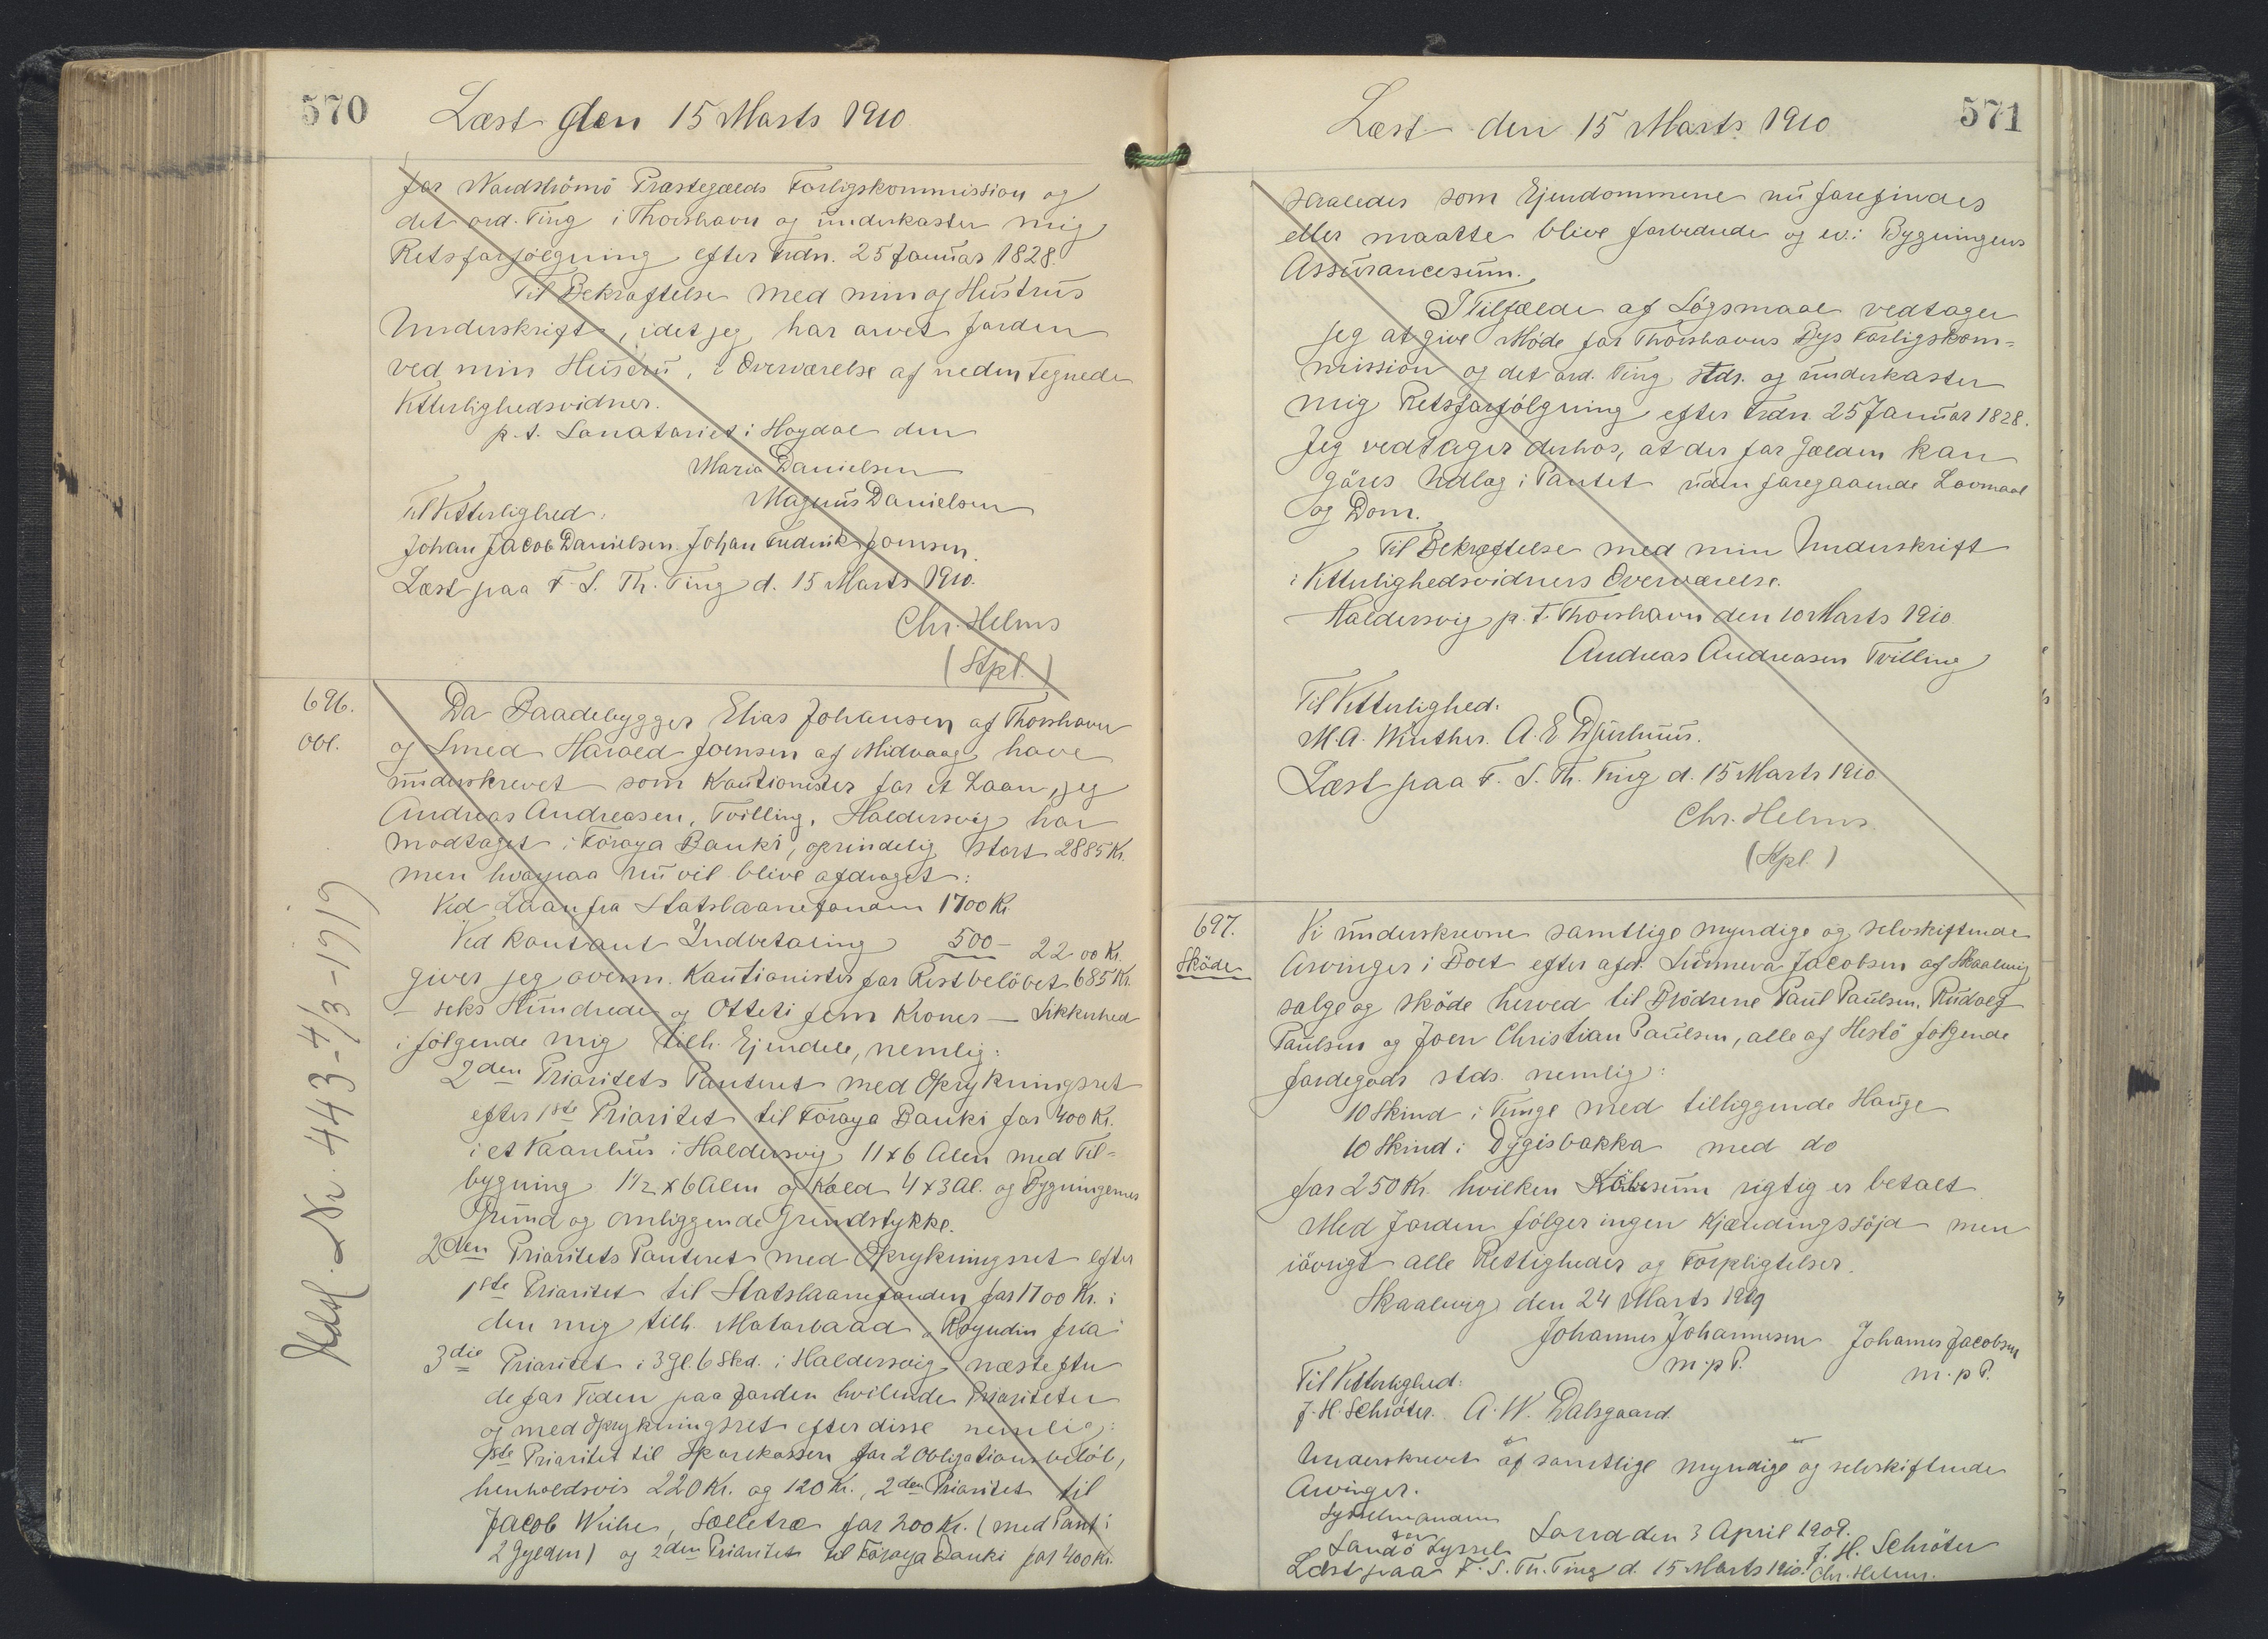 570
Læst den 15 Marts 1910
for Nordströmö Præstegjælds Forligskommission og
det ord. Ting i Thorshavn og underkaster mig
Retsforfølgning efter Frdn. 25 Januar 1828.
Til Bekræftelse med min og Hustrus
Underskrift, idet jeg har arvet Jorden
ved min Hustru, i Overværelse af nedentegnede
Vitterlighedsvidner.
p.t. Sanatoriet i Hoydal den
Maria Danielsen
Magnus Danielsen
Til Vitterlighed:
Johan Jacob Danielsen. Johan Fredrik Joensen.
Læst paa F. S. Th. Ting d. 15 Marts 1910.
Chr. Helms
(Stpl.)
696.
Obl.
Da Baadebygger Elias Johansen af Thorshavn
og Smed Harald Joensen af Midvaag have
underskrevet som Kautionister for et Laan, jeg
Andreas Andreasen, Tvilling, Haldersvig har
modtaget i Föroya Banki, oprindelig stort 2885 Kr.
men hvorpaa nu vil blive afdraget:
Ved Laan fra Statslaanefonden 1700 Kr
Ved Kontant Indbetaling 500 - 2200 Kr.
giver jeg ovenn. Kautionister for Restbelöbet 685 Kr.
- seks Hundrede og Otteti fem Kroner - Sikkerhed
i fölgende mig tilh. Ejendele, nemlig:
2den Prioritets Panteret med Oprykningsret
efter 1ste Prioritet til Föroya Banki for 400 Kr.
i et Vaanhus i Haldersvig 11 x 6 Alen med Til-
bygning 1 1/2 x 6 Alen og Kæld 4 x 3 Al. og Bygningernes
Grund og omliggende Grundstykke.
2den Prioritets Panteret med Oprykningsret efter
1ste Prioritet til Statslaanefonden for 1700 Kr. i
den mig tilh. Motorbaad "Royndin fría"
3die Prioritet i 3 Gl. 6 Skd. i Haldersvig næstefter
de for Tiden paa Jorden hvilende Prioriteter
og med Oprykningsret efter disse nemlig:
1ste Prioritet til Sparekassen for 2 Obligationsbelöb,
henholdsvis 220 Kr. og 120 Kr., 2den Prioritet til
Jacob Weihe, Sælletræ for 200 Kr. (med Pant i
2 Gylden) og 2den Prioritet til Föroya Banki for 400 Kr.
Nr. 443-4/3-1919
571
Læst den 15 Marts 1910
saaledes som Ejendommene nu forefindes
eller maatte blive forbedrede og ev. i Bygningens
Assurancesum.
I Tilfælde af Sögsmaal vedtager
jeg at give Möde for Thorshavns Bys Forligskom-
mission og det ord. Ting stds. og underkaster
mig Retsforfölgning efter Frdn 25 Januar 1828.
Jeg vedtager derhos, at der for Gælden kan
göres Udlæg i Pantet uden foregaaende Lovmaal
og Dom.
Til Bekræftelse med min Underskrift
i Vitterlighedsvidners Overværelse.
Haldersvig p.t. Thorshavn den 10 Marts 1910
Andreas Andreasen Tvilling
Til Vitterlighed:
M. A. Winther. A. E. Djurhuus.
Læst paa F. S. Th. Ting d. 15 Marts 1910
Chr. Helms
(Stpl.)
697.
Sköde
Vi underskrevne samtlige myndige og selvskiftende
Arvinger i Boet efter afd. Sunneva Jacobsen af Skaalevig
sælge og sköde herved til Brödrene Paul Paulsen, Rudolf
Paulsen og Joen Christian Paulsen, alle af Hestö fölgende
Jordegods stds. nemlig:
10 Skind i Tunge med tilliggende Hauge
10 Skind i Dygisbakka med do
for 250 Kr. hvilken Köbesum rigtig er betalt
Med Jorden fölger ingen Kjændingssöjd men
iövrigt alle Rettigheder og Forpligtelser.
Skaalevig den 24 Marts 1909
Johannes Johannesen Johannes Jacobsen
m.p.P. m.p.P.
Til Vitterlighed:
J. H. Schröter. A. W. Dalsgaard.
Underskrevet af samtlige myndige og selvskiftende
Arvinger.
Sysselmanden
for
Sandö Syssel Sand den 3 April 1909.
J. H. Schröter
Læst paa F. S. Th. Ting d. 15 Marts 1910. Chr. Helms.